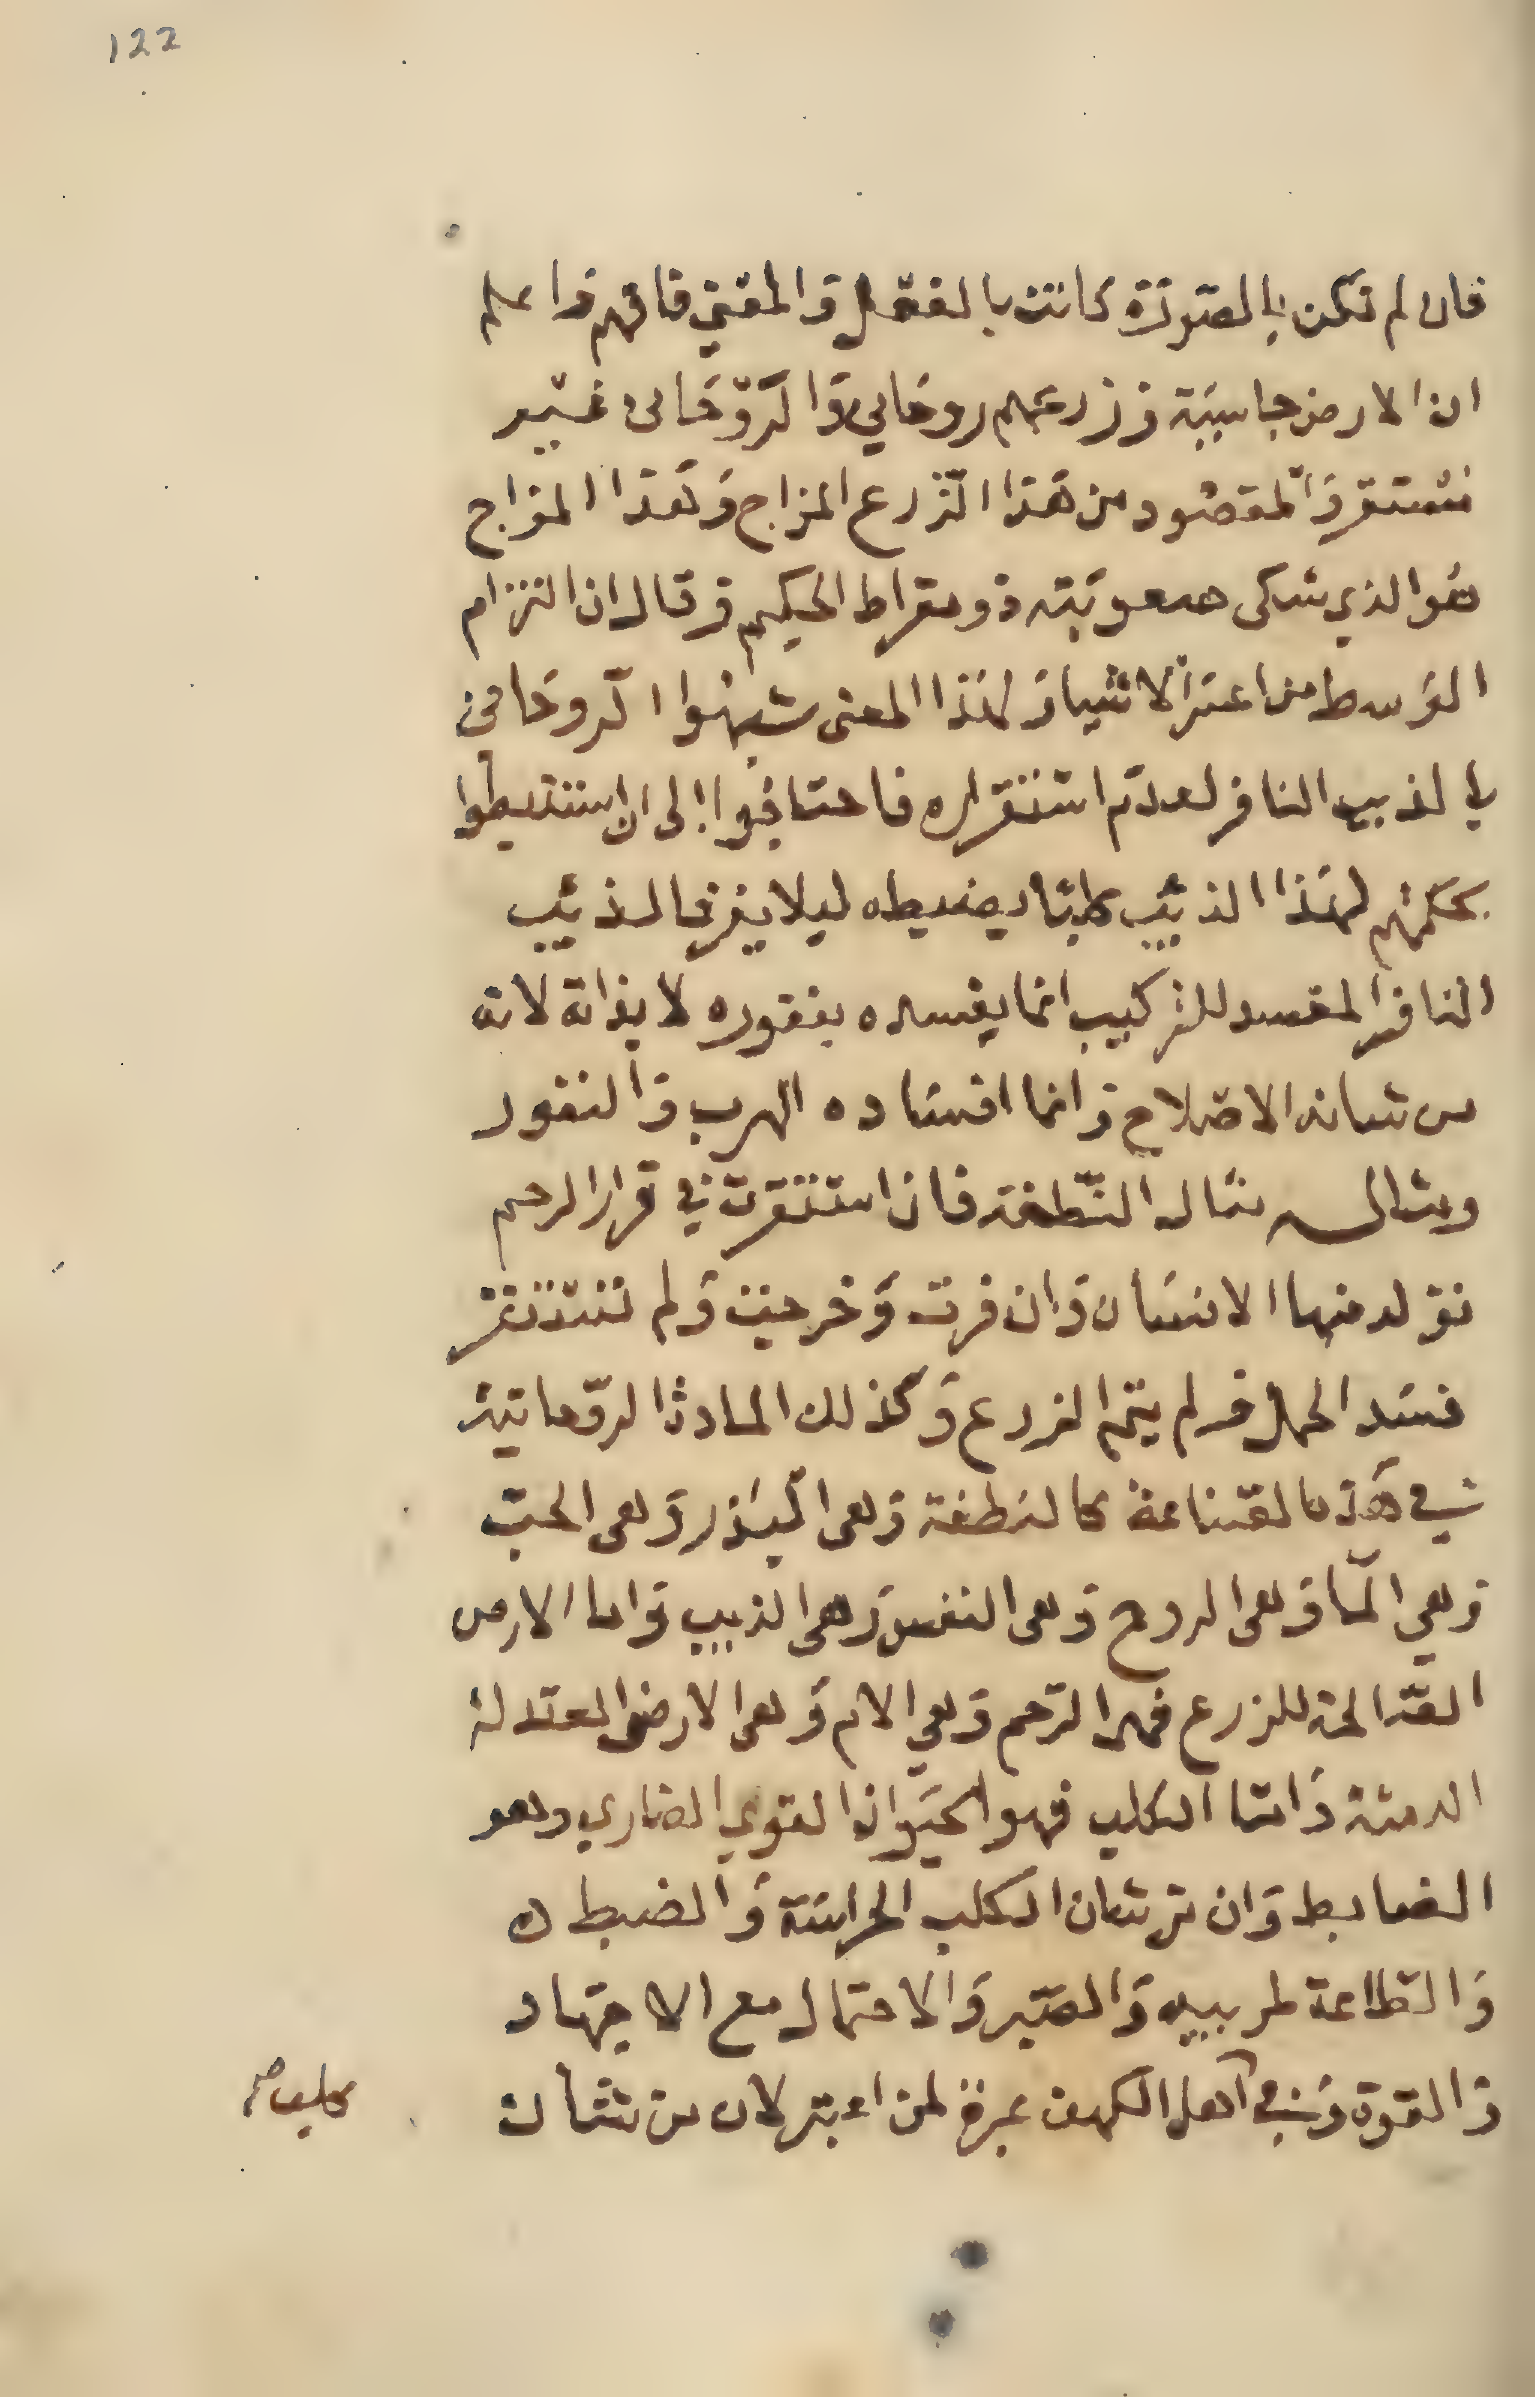 122
فان لم تكن بالصورة كانت بالفعل والمعنى فافهم واعلم
ان الارض جاسية وزرعهم روحاني والروحاني غير
مستقر والمقصود من هذا الزرع المزاج وهذا المزاج
هو الذي شكى صعوبته ذومقراط الحكيم وقال ان التزام
الوسط من اعسر الاشيا ولهذا المعنى شبهوا الروحاني
بالذيب النافر لعدم استقراره فاحتاجوا الى ان استنبطوا
بحكمتهم لهذا الذيب كلبا يضبطه ليلا ينفر فالذيب
النافر المفسد للتركيب انما يفسده بنفوره لا بذاته لانه
من شانه الاصلاح وانما افساده الهرب والنفور
ومثاله مثال النطفة فان استقرت في قرار الرحم
تولد منها الانسان وان فرت وخرجت ولم تستقر
فسد الحمل ولم يتم الزرع وكذلك المادة الروحانية
في هذه الصناعة كالنطفة وهي البذر وهي الحب
وهي الما وهي الروح وهي النفس وهي الذيب واما الارض
الصالحة للزرع فهي الرحم وهي الام وهي الارض المعتدلة
الدمثة واما الكلب فهو الحيوان القوي الضاري وهو
الضابط وان من شان الكلب الحراسة والضبط
والطاعة لمربيه والصبر والاحتمال مع الاجتهاد
والقوة وفي اهل الكهف عبرة لمن اعتبر لان من شان
كلبهم